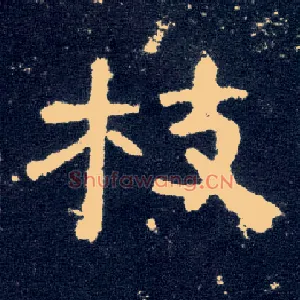 枝
Shufawang.CN